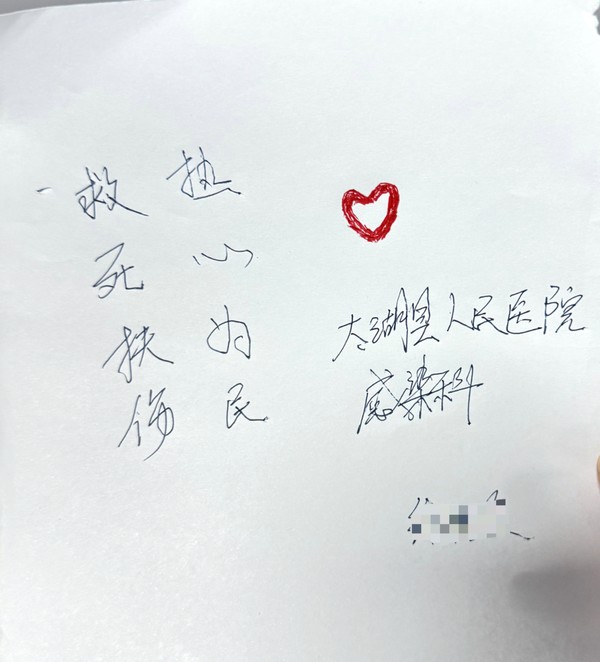 救死扶伤
热心为民
太湖县人民医院
感染科